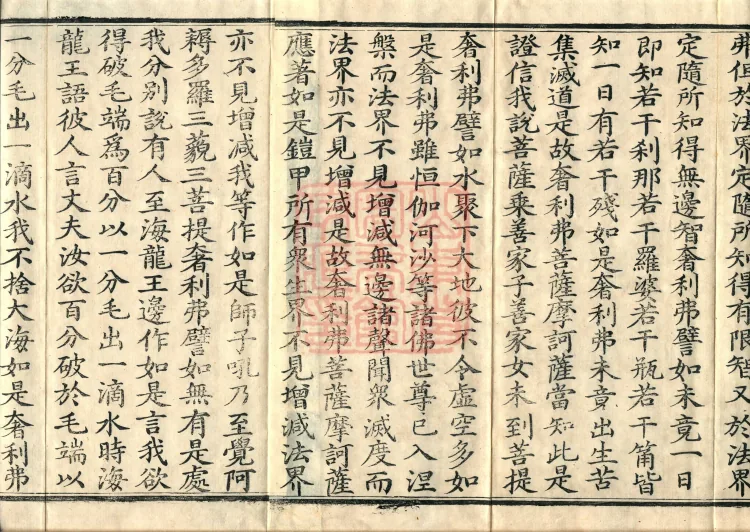 弗但於法界定隨所知得有限智又於法界
定隨所知得無邊智奢利弗譬如未竟一日
即知若干刹那若干羅婆若干瓶若干筩皆
知一日有若干殘如是奢利弗未竟出生苦
集滅道是故奢利弗菩薩摩訶薩當知此是
證信我說菩薩乘善家子善家女未到菩提
奢利弗譬如水聚下大地彼不令虛空多如
是奢利弗雖恒伽河沙等諸佛世尊已入涅
槃而法界不見增減無邊諸聲聞衆滅度而
法界亦不見增減是故奢利弗菩薩摩訶薩
應著如是鎧甲所有衆生界不見增減法界
亦不見增減我等作如是師子吼乃至覺阿
耨多羅三藐三菩提奢利弗譬如無有是處
我分別說有人至海龍王邊作如是言我欲
得破毛端爲百分以一分毛出一滴水時海
龍王語彼人言丈夫汝欲百分破於毛端以
一分毛出一滴水我不捨大海如是奢利弗